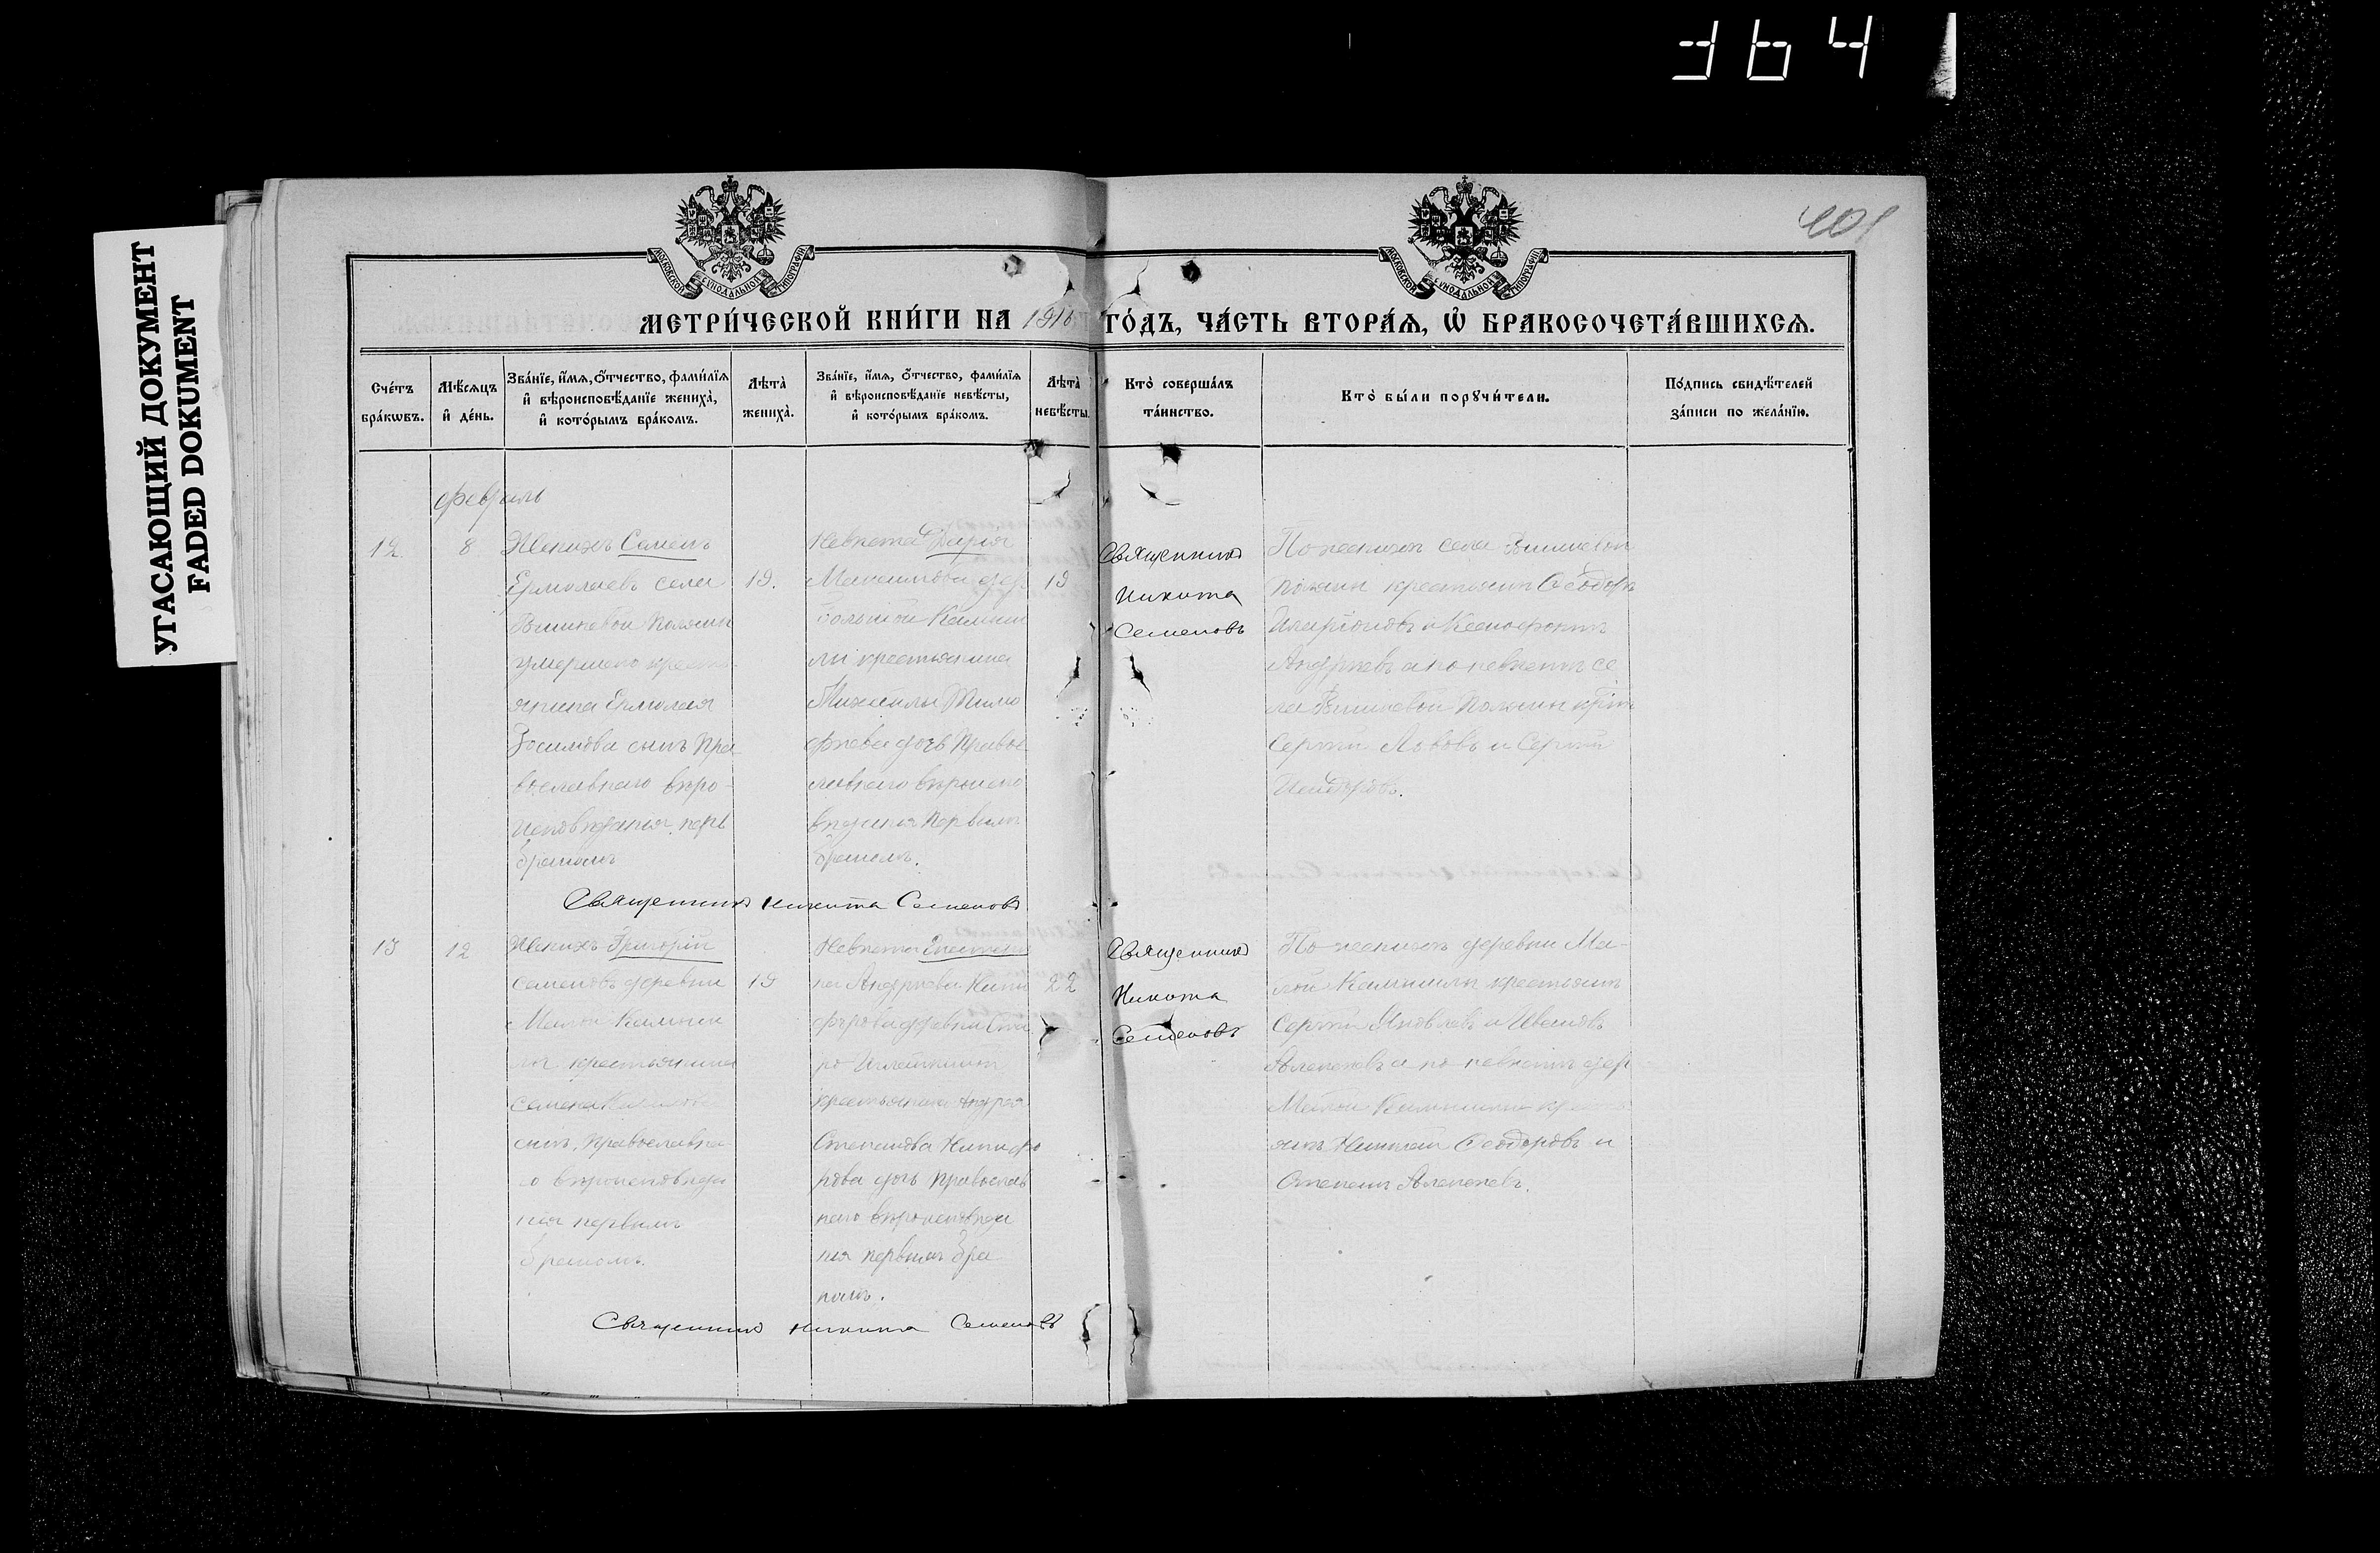 364
401
УГАСАЮЩИЙ ДОКУМЕНТ
FADED DOKUMENT
МОСКОВСКОЙ СѴНОДАЛЬНОЙ ТИПОГРАФІИ
МОСКОВСКОЙ СѴНОДАЛЬНОЙ ТИПОГРАФІИ
МЕТРИ́ЧЕСКОЙ КНИ́ГИ НА 1916 ГО́ДЪ, ЧА́СТЬ ВТОРА́Ѧ, Ѽ БРАКОСОЧЕТА́ВШИХСѦ.
Сче́тъ бра́кѡвъ.
Мѣ́сѧцъ и҆ де́нь.
Зва́нїе, и҆́мѧ, ѻ҆́тчество, фами́лїѧ
и҆ вѣроисповѣ́данїе жениха̀,
и҆ кото́рымъ бра́комъ.
Лѣта̀ жениха̀.
Зва́нїе, и҆́мѧ, ѻ҆́тчество, фами́лїѧ
и҆ вѣроисповѣ́данїе невѣ́сты,
и҆ кото́рымъ бра́комъ.
Лѣта̀ невѣ́сты.
Кто̀ соверша́лъ
та́инство.
Кто̀ бы́ли порꙋчи́тели.
По́дпись свидѣ́телей
за́писи по жела́нїю.
февраль
12.
8
Женихъ Семенъ
Ермолаевъ села
Вишневой Поляны
умершаго кресть-
янина Ермолая
Зосимова сынъ Пра
вославнаго вѣро-
исповѣданія перв
бракомъ
19.
Невѣста Дарія
Михаилова дер.
Большой Камыш
лы крестьянина
Михаилы Тимо
фѣева дочь Правос
лавнаго вѣроиспо
вѣданія первымъ
бракомъ.
19
Священникъ
Никита
Семеновъ
По женихѣ села Вишневой
Поляны крестьянинъ Ѳеодоръ
Иларіоновъ и Ксенофонтъ
Андреевъ а по невѣстѣ се
ла Вишневой Поляны крест
Сергѣй Львовъ и Сергѣй
Исидоровъ.
Священникъ Никита Семеновъ
13
12
Женихъ Григорій
Семеновъ деревни
Малой Камыш
лы крестьянина
Семена
сынъ, православна
го вѣроисповѣда
нія первымъ
бракомъ.
19
Невѣста
на Андреева Ники
форова деревни Ста
ро
крестьянина Андрея
Степанова Никифо
рова дочь православ
наго вѣроисповѣда
нія первымъ бра
комъ.
22
Священникъ
Никита
Семеновъ
По женихѣ деревни Ма-
лой Камышлы крестьянинъ
Сергѣй Яковлевъ и Ивановъ
Алексѣевъ а по невѣстѣ дер
Малой Камышлы кресть
янъ Николай Ѳеодоровъ и
Степанъ Алексѣевъ.
Священникъ Никита Семеновъ